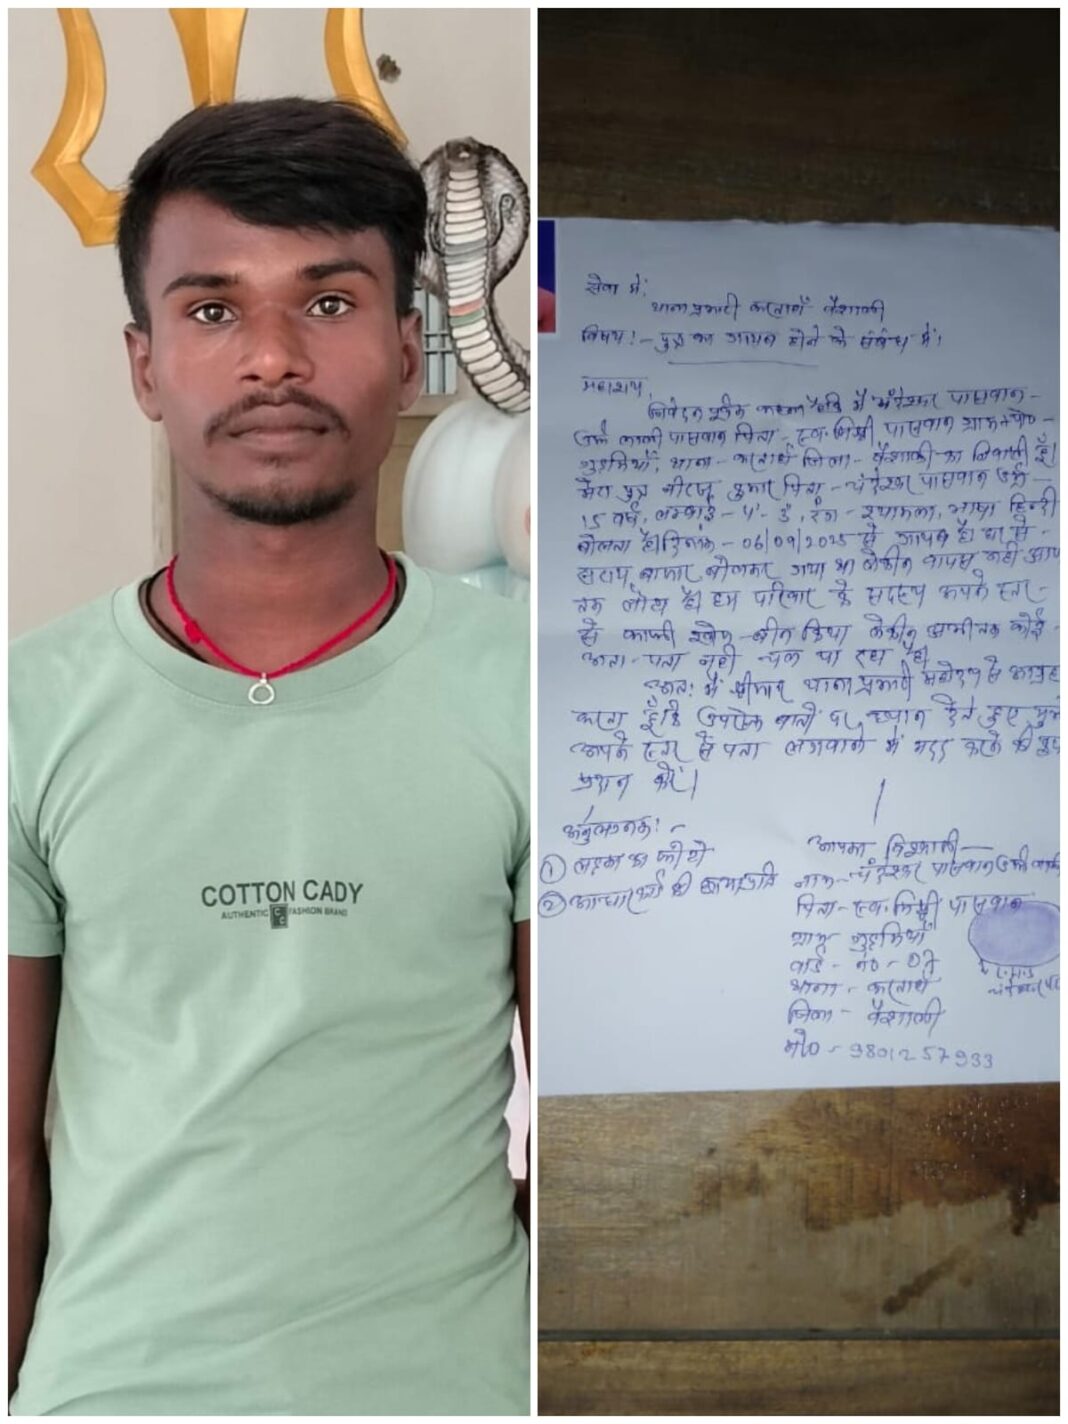 COTTON CADY
AUTHENTIC CC FASHION BRAND
सेवा में,
थाना प्रभारी वैशाली
विषय:- पुत्र का गायब होने के संबंध में।
महाशय,
निवेदन पूर्वक कहना है कि मैं चंदेश्वर पासवान -
उर्फ पासवान पिता - स्व. पासवान ग्राम + पो० -
थाना - जिला - वैशाली का निवासी हूँ।
मेरा पुत्र कुमार पिता - चंदेश्वर पासवान उम्र -
15 वर्ष, लम्बाई - रंग - श्यामला, भाषा हिन्दी
बोलता है। दिनांक - 06/09/2025 से गायब है। घर से -
सराय बाजार बोलकर गया था लेकीन वापस नहीं आप
तक लौटा है। हम परिवार के सदस्य अपने स्तर -
से काफी खोज - बीन किया लेकीन अभी तक कोई -
अता - पता नहीं चल पा रहा है।
अतः मैं श्रीमान थाना प्रभारी महोदय से आग्रह
करता हूँ कि उपरोक्त बातों पर ध्यान देते हुए
अपने स्तर से पता लगवाने में मदद करने की
प्रदान करें।
अनुलग्नक:-
① लड़का का फोटो
② आधार कार्ड की छायाप्रति
आपका विश्वासी -
नाम - चंदेश्वर पासवान उर्फ
पिता - स्व. पासवान
ग्राम
वार्ड - नं० - 07
थाना -
जिला - वैशाली
मो० - 9801257933